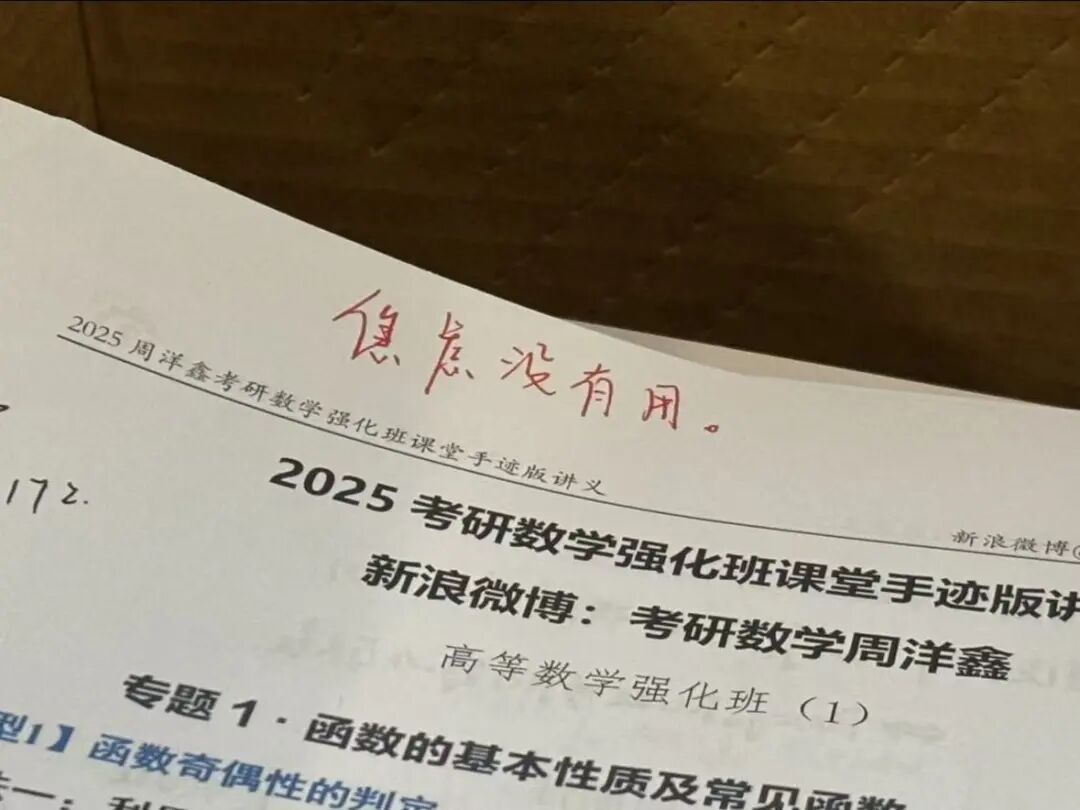 焦虑没有用。
2025 周洋鑫考研数学强化班课堂手迹版讲义
新浪微博
172.
2025 考研数学强化班课堂手迹版讲
新浪微博：考研数学周洋鑫
高等数学强化班（1）
专题 1·函数的基本性质及常见函数
型1】函数奇偶性的判定
一：利用